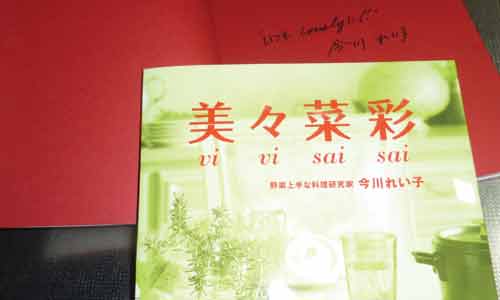 いつも lovelyに!!
今川 れい子
美々菜彩
vi vi sai sai
野菜上手な料理研究家 今川れい子